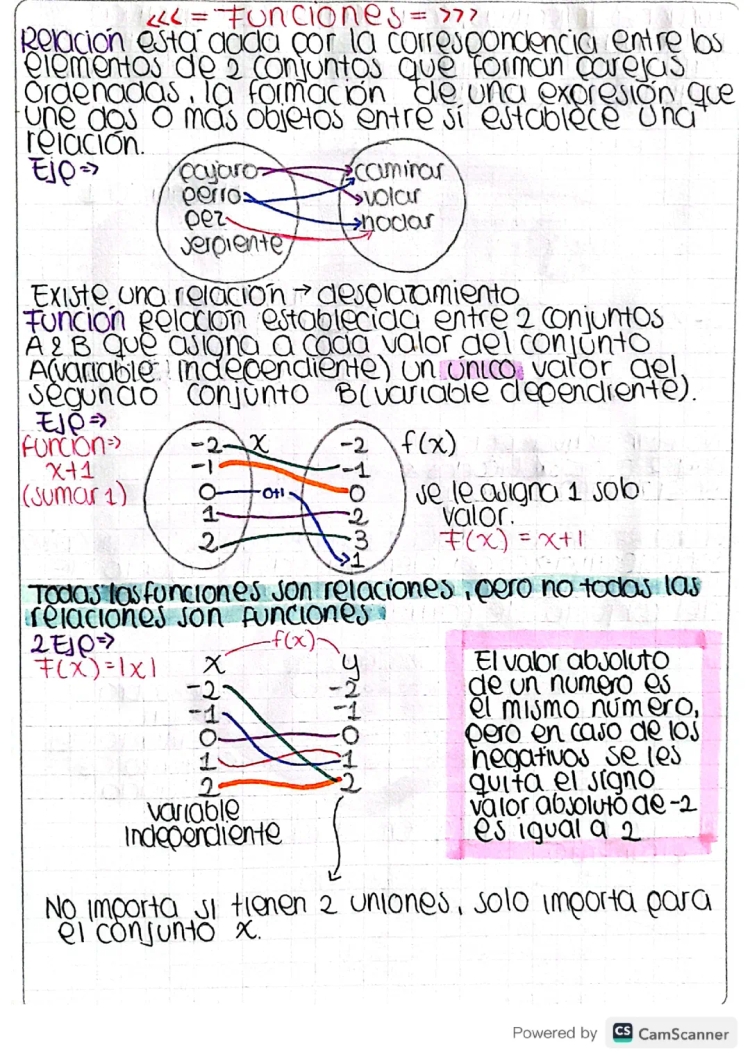 <<< = Funciones = >>>
Relación está dada por la correspondencia entre los
elementos de 2 conjuntos que forman parejas
ordenadas, la formación de una expresión que
une dos o más objetos entre sí establece una
relación.
Ejp⇒
pajaro caminar
perro volar
pez nadar
serpiente
Existe una relación → desplazamiento
Función Relación establecida entre 2 conjuntos
A & B que asigna a cada valor del conjunto
A(variable independiente) un único valor del
segundo conjunto B(variable dependiente).
Ejp⇒
función⇒
x+1
(sumar 1)
x f(x)
-2 -2
-1 -1
0 0+1 0
1 2
2 3
1
se le asigna 1 solo
valor.
F(x) = x+1
Todas las funciones son relaciones, pero no todas las
relaciones son funciones
2 Ejp⇒
F(x)=|x|
f(x)
x y
-2 -2
-1 -1
0 0
1 1
2 2
variable
independiente
El valor absoluto
de un numero es
el mismo número,
pero en caso de los
negativos se les
quita el signo
valor absoluto de -2
es igual a 2
No importa si tienen 2 uniones, solo importa para
el conjunto x.
Powered by CS CamScanner